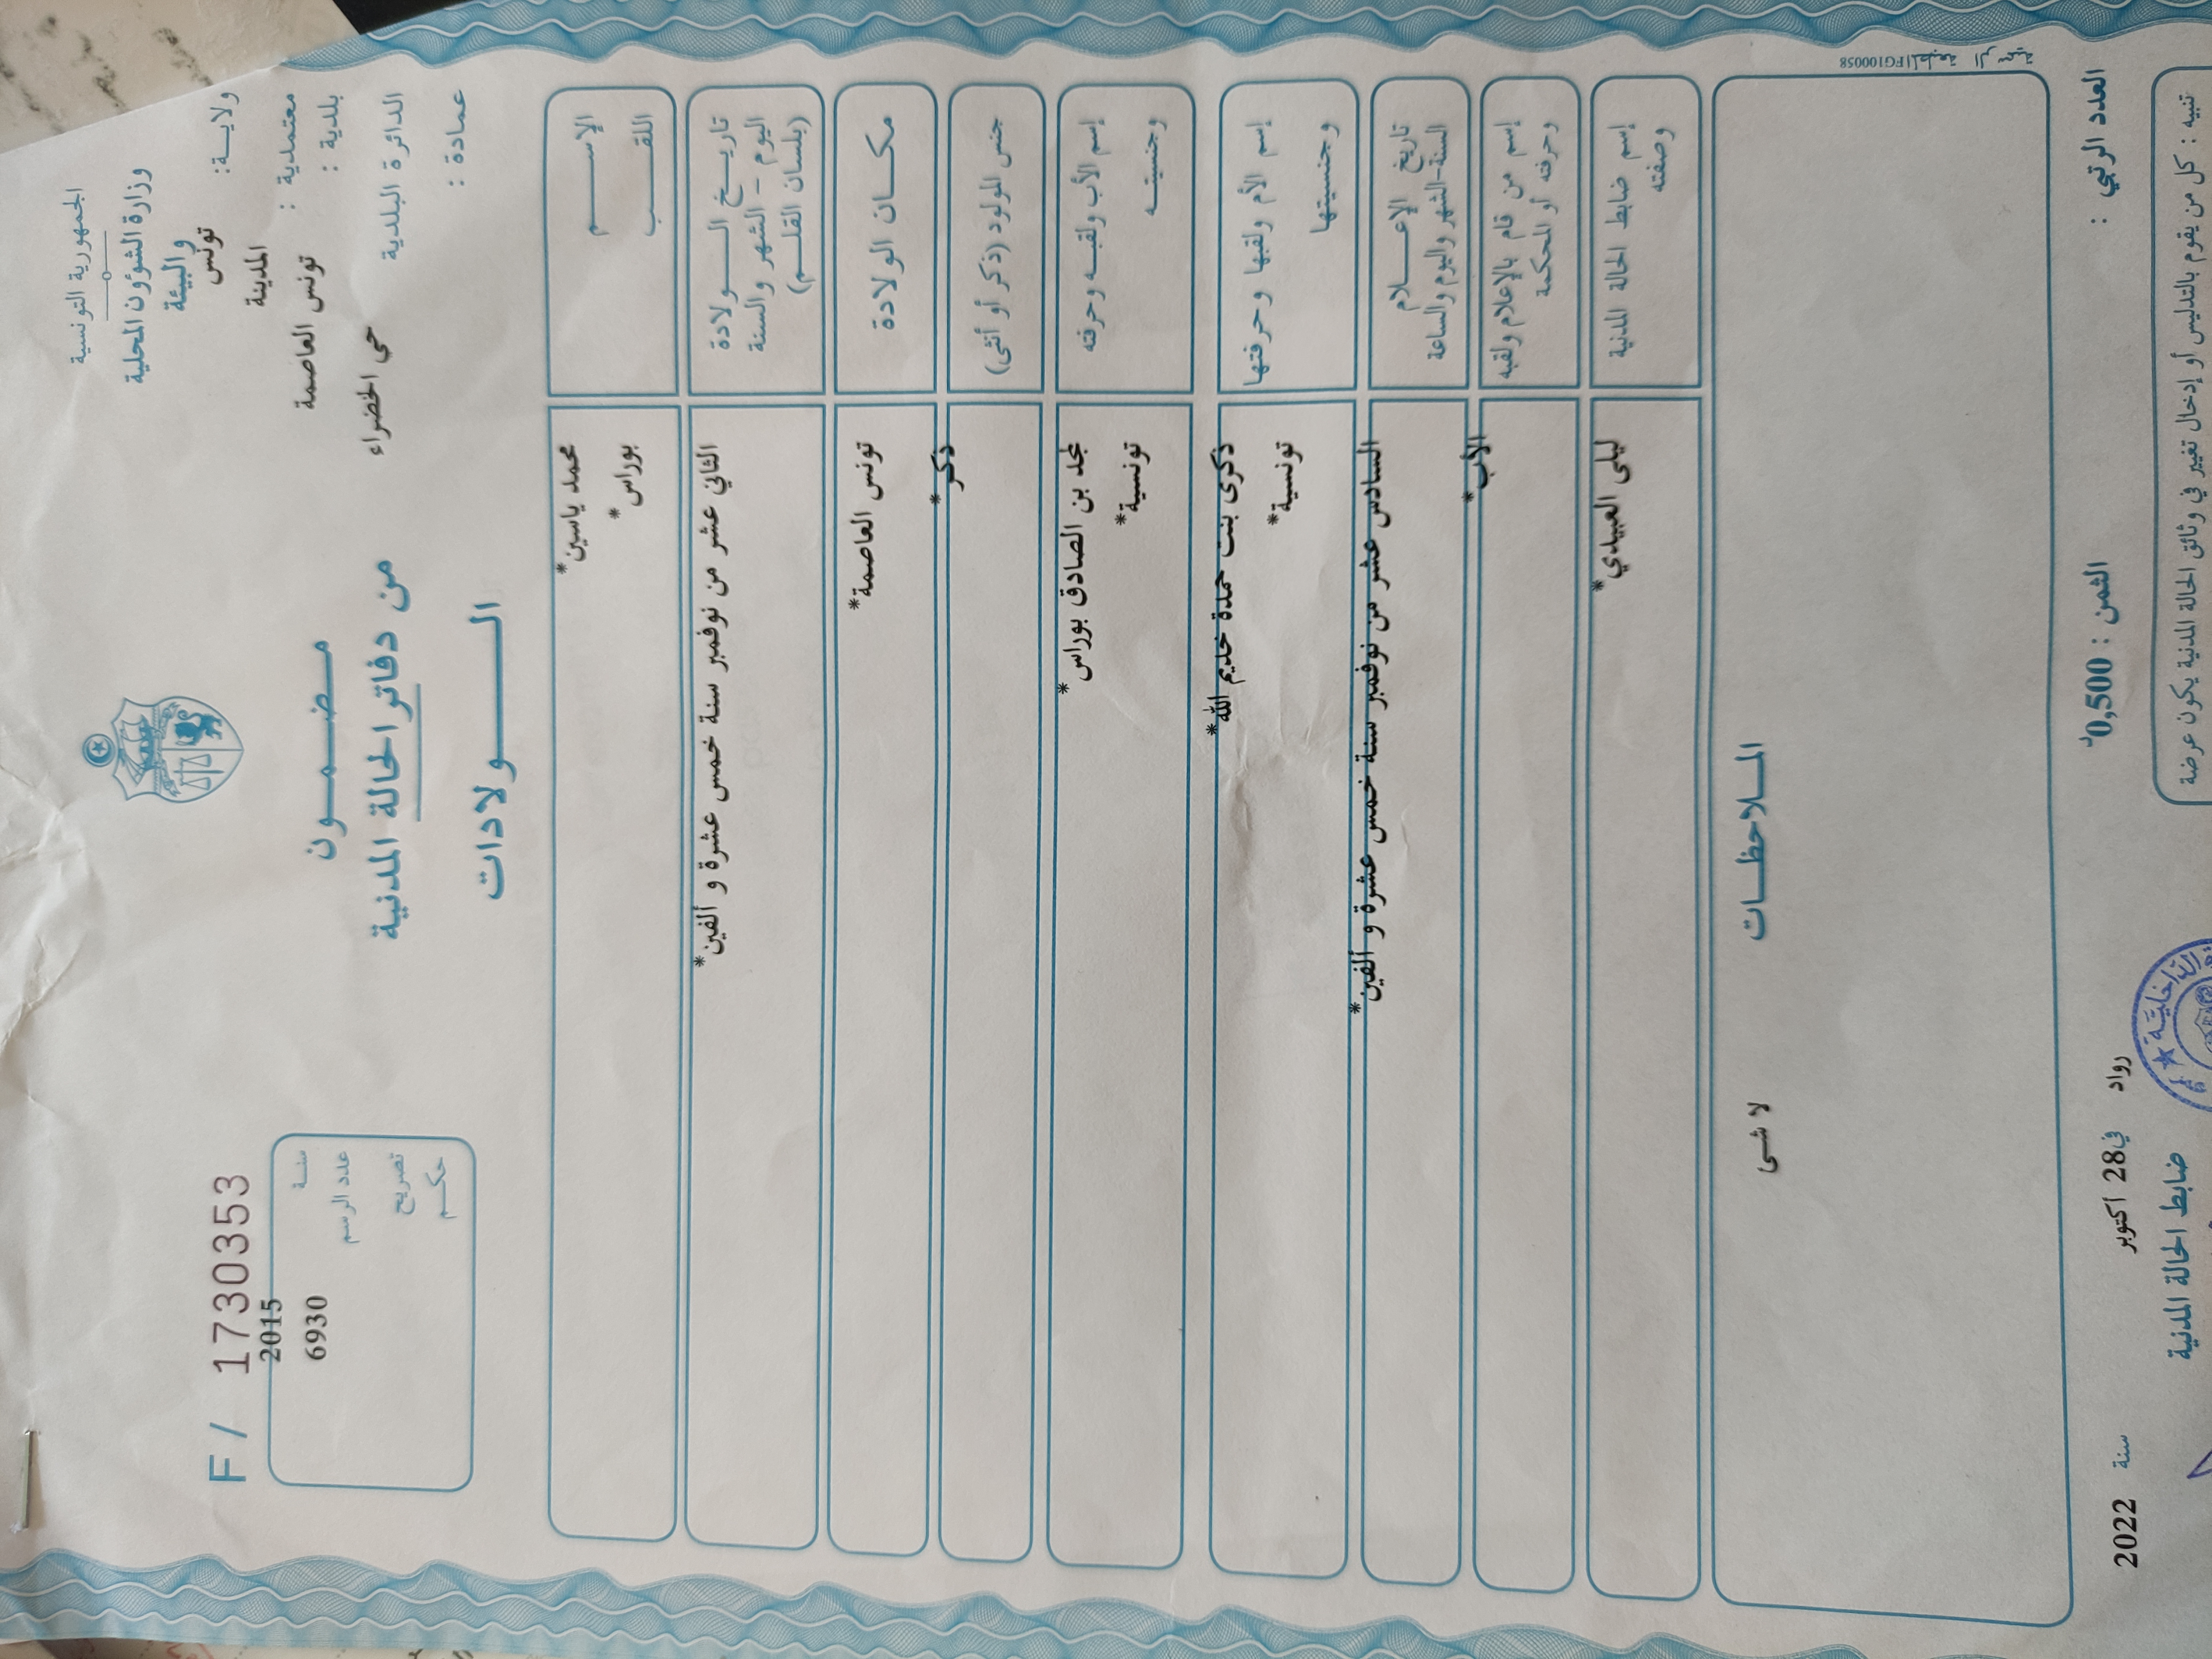 الجمهورية التونسية
وزارة الشؤون المحلية
والبيئة
ولايـة : تونس
معتمدية : المدينة
بلدية : تونس العاصمة
الدائرة البلدية حي الخضراء
عمادة :
مـضـمـون
من دفاتر الحالة المدنية
الـولادات
F / 1730353
سنـة 2015
عدد الرسم 6930
تصريح
حكـم
الإسـم محمد ياسين*
اللقـب بوراس*
تاريـخ الـولادة الثاني عشر من نوفمبر سنة خمس عشرة و ألفين*
اليوم - الشهر والسنة
(بلسان القلـم)
مكـان الولادة تونس العاصمة*
جنس المولود (ذكر أو أنثى) ذكر*
إسم الأب ولقبـه وحرفته محمد بن الصادق بوراس*
وجنسيتـه تونسية*
إسم الأم ولقبها وحرفتها ذكرى بنت حمدة خديم الله*
وجنسيتها تونسية*
تاريخ الإعـلام السادس عشر من نوفمبر سنة خمس عشرة و ألفين*
السنة-الشهر واليوم والساعة
إسم من قام بالإعلام ولقبه الأب*
وحرفته أو المحكمة
إسم ضابط الحالة المدنية ليلى العبيدي*
وصفته
الملاحظـات
لا شى
FG100058
العدد الرتبي :
الثمن : 0,500د
رواد في 28 اكتوبر سنة 2022
ضابط الحالة المدنية
الداخليـة
تنبيه : كل من يقوم بالتدليس أو إدخال تغيير في وثائق الحالة المدنية يكون عرضة